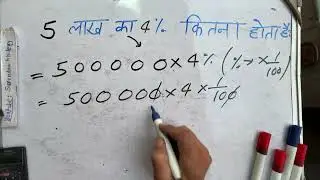 5 लाख का 4% कितना होता है
= 500000×4% (%→×1/100)
= 500000×4×1/100